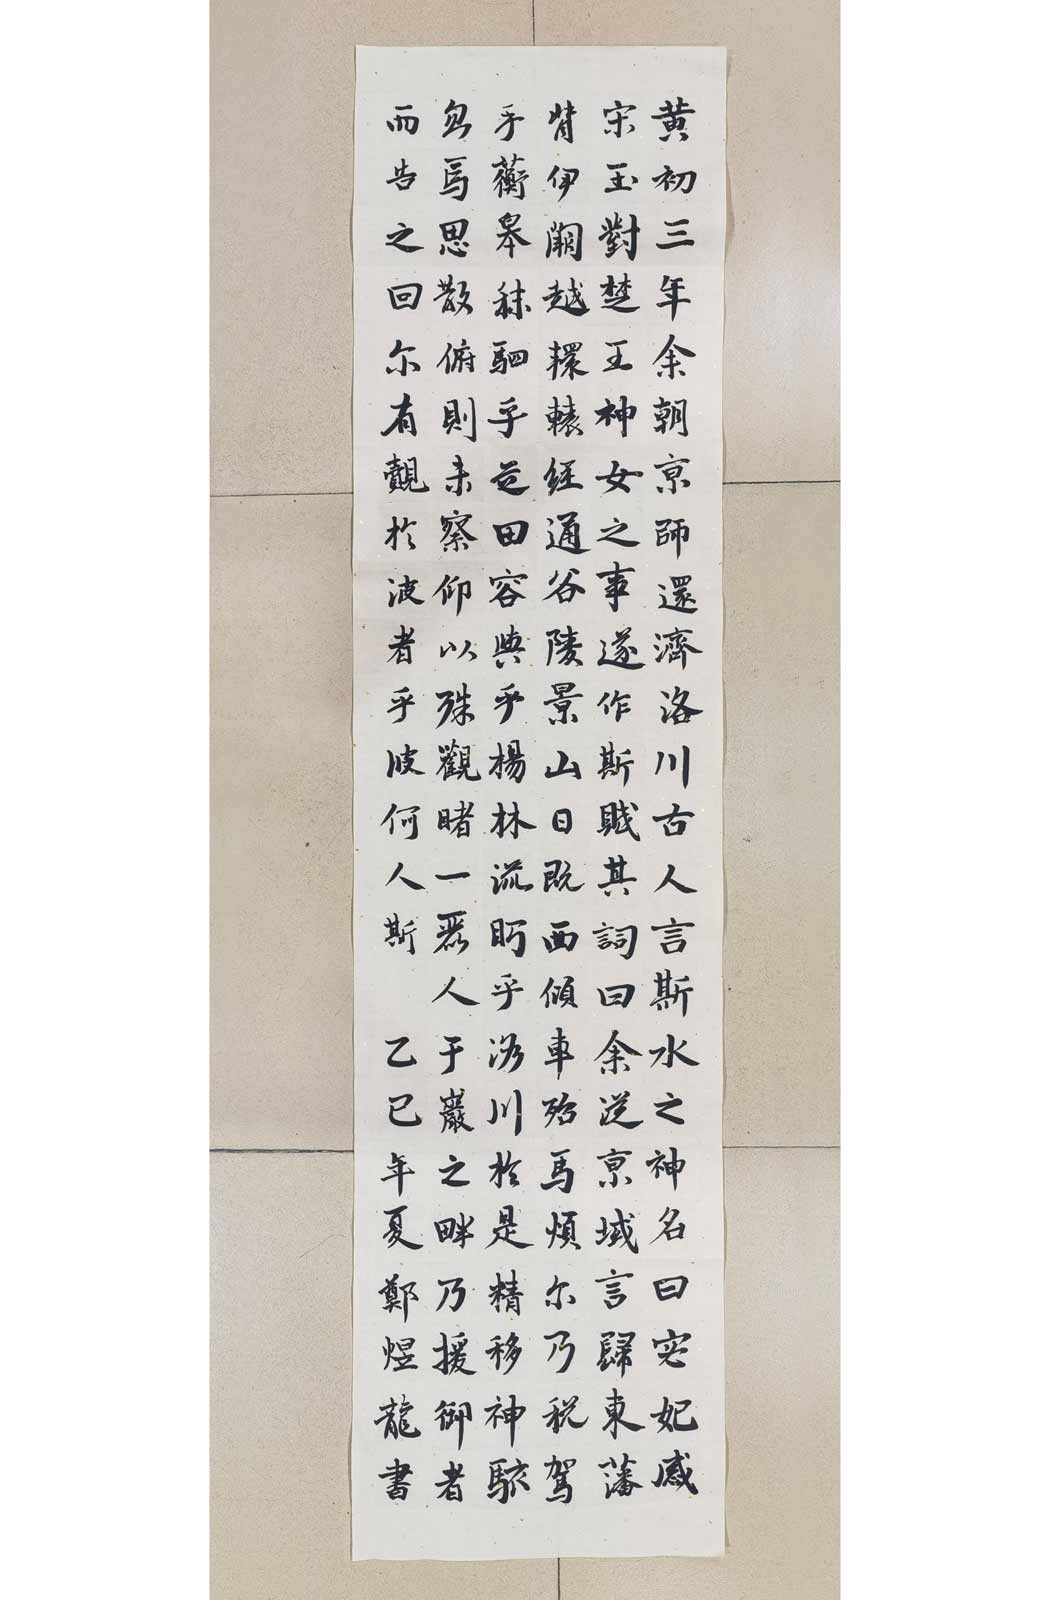 黄初三年余朝京師還濟洛川古人言斯水之神名曰宓妃感
宋玉對楚王神女之事遂作斯賦其詞曰余從京域言歸東藩
背伊闕越轘轅經通谷陵景山日既西傾車殆馬煩尔乃税駕
乎蘅皋秣駟乎芝田容與乎楊林流眄乎洛川於是精移神駭
忽焉思散俯則未察仰以殊觀睹一麗人于巖之畔乃援御者
而告之曰尔有覿於彼者乎彼何人斯 乙巳年夏鄭煜龍書